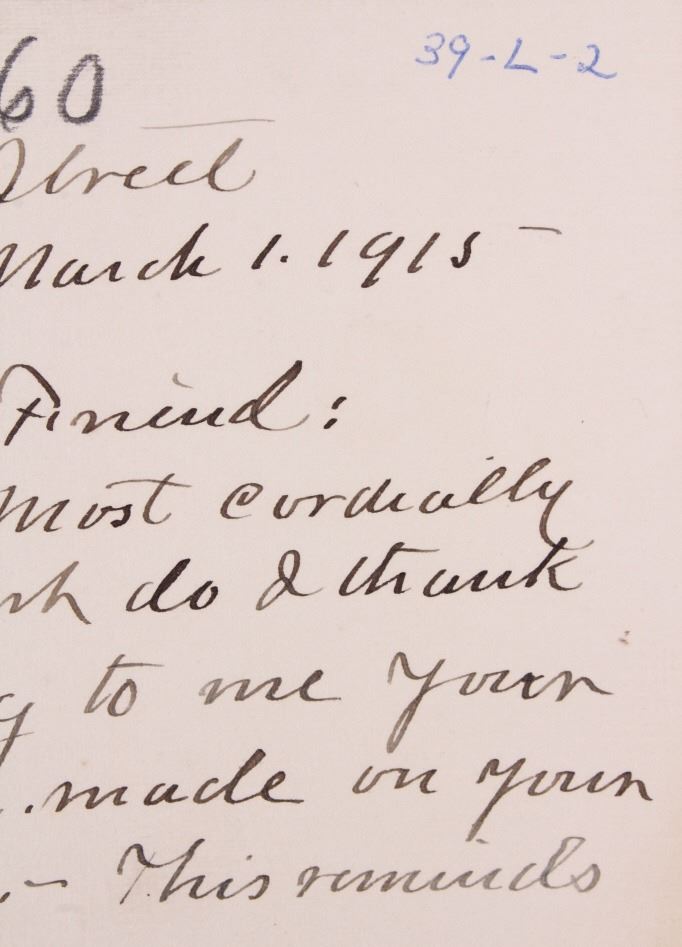 39-L-2
60
Street
March 1. 1915-
Friend:
Most cordially
do I thank
to me your
. made on your
.- This reminds